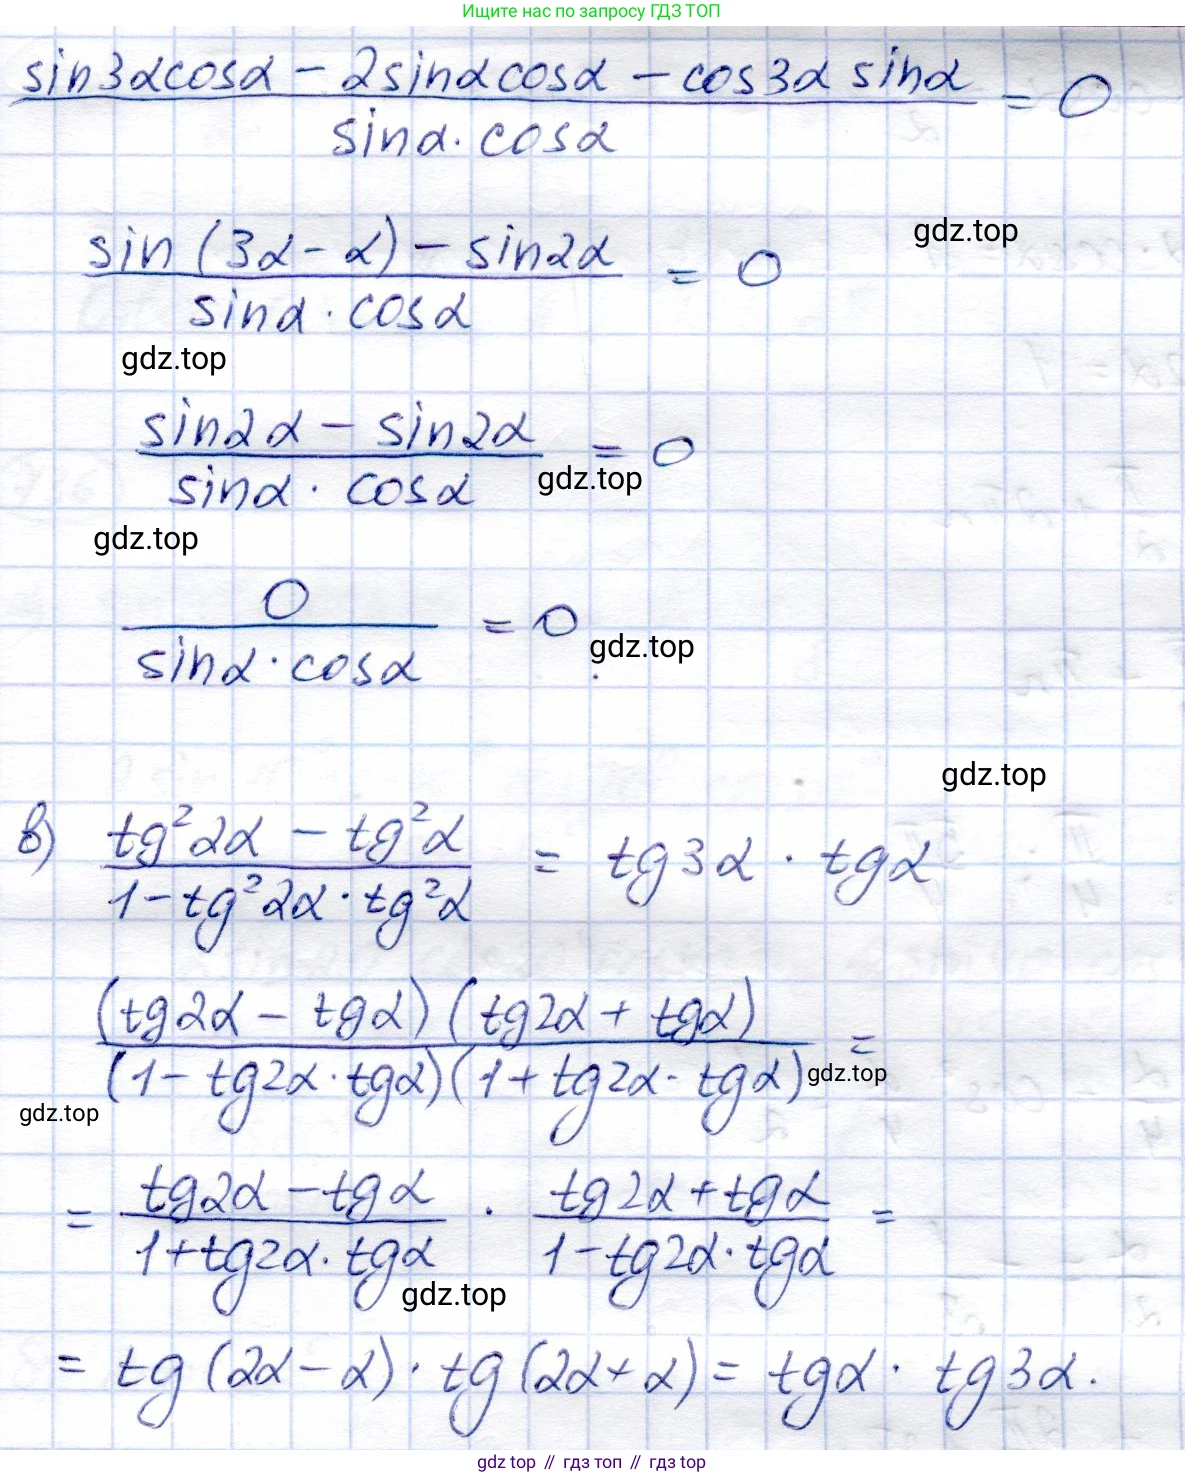 Ищите нас по запросу ГДЗ ТОП
sin3αcosα − 2sinαcosα − cos3α sinα / sinα · cosα = 0
gdz.top
sin (3α − α) − sin2α / sinα · cosα = 0
gdz.top
sin2α − sin2α / sinα · cosα = 0
gdz.top
gdz.top
0 / sinα · cosα = 0.
gdz.top
gdz.top
в) tg²2α − tg²α / 1 − tg²2α · tg²α = tg3α · tgα
(tg2α − tgα)(tg2α + tgα) / (1 − tg2α · tgα)(1 + tg2α · tgα) =
gdz.top
gdz.top
= tg2α − tgα / 1 + tg2α · tgα · tg2α + tgα / 1 − tg2α · tgα =
gdz.top
= tg (2α − α) · tg (2α + α) = tgα · tg3α.
gdz top // гдз топ // gdz top